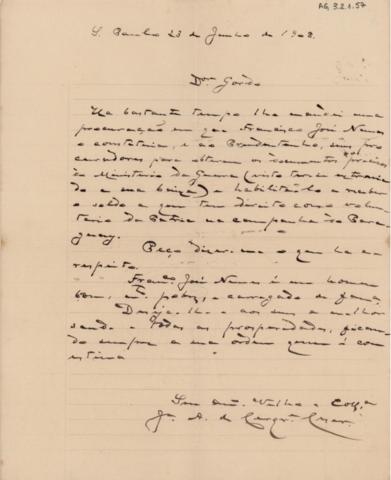 AG 3.2.1.57
S. Paulo 23 de Junho de 1902.
Dor Gordo
Ha bastante tempo lhe mandei uma
procuração em que Francisco José Nunes
o constituia, e ao Prudentinho, seus pro
curadores para obterem os documentos precisos
do Ministerio da Guerra (visto ter se extravia
do a sua baixa) e habilital-o a receber
o soldo a que tem direito como volun
tario da Patria na campanha do Para
guay.
Peço dizer-me o que ha a
respeito.
Franco José Nunes é um homem
bom, mto pobre, e carregado de familia.
Desejo-lhe e aos seus a melhor
saude e todas as prosperidades, fican
do sempre a sua ordem quem é com
estima
Seu Velho e Colla
J. A. de Cerqra Cesar